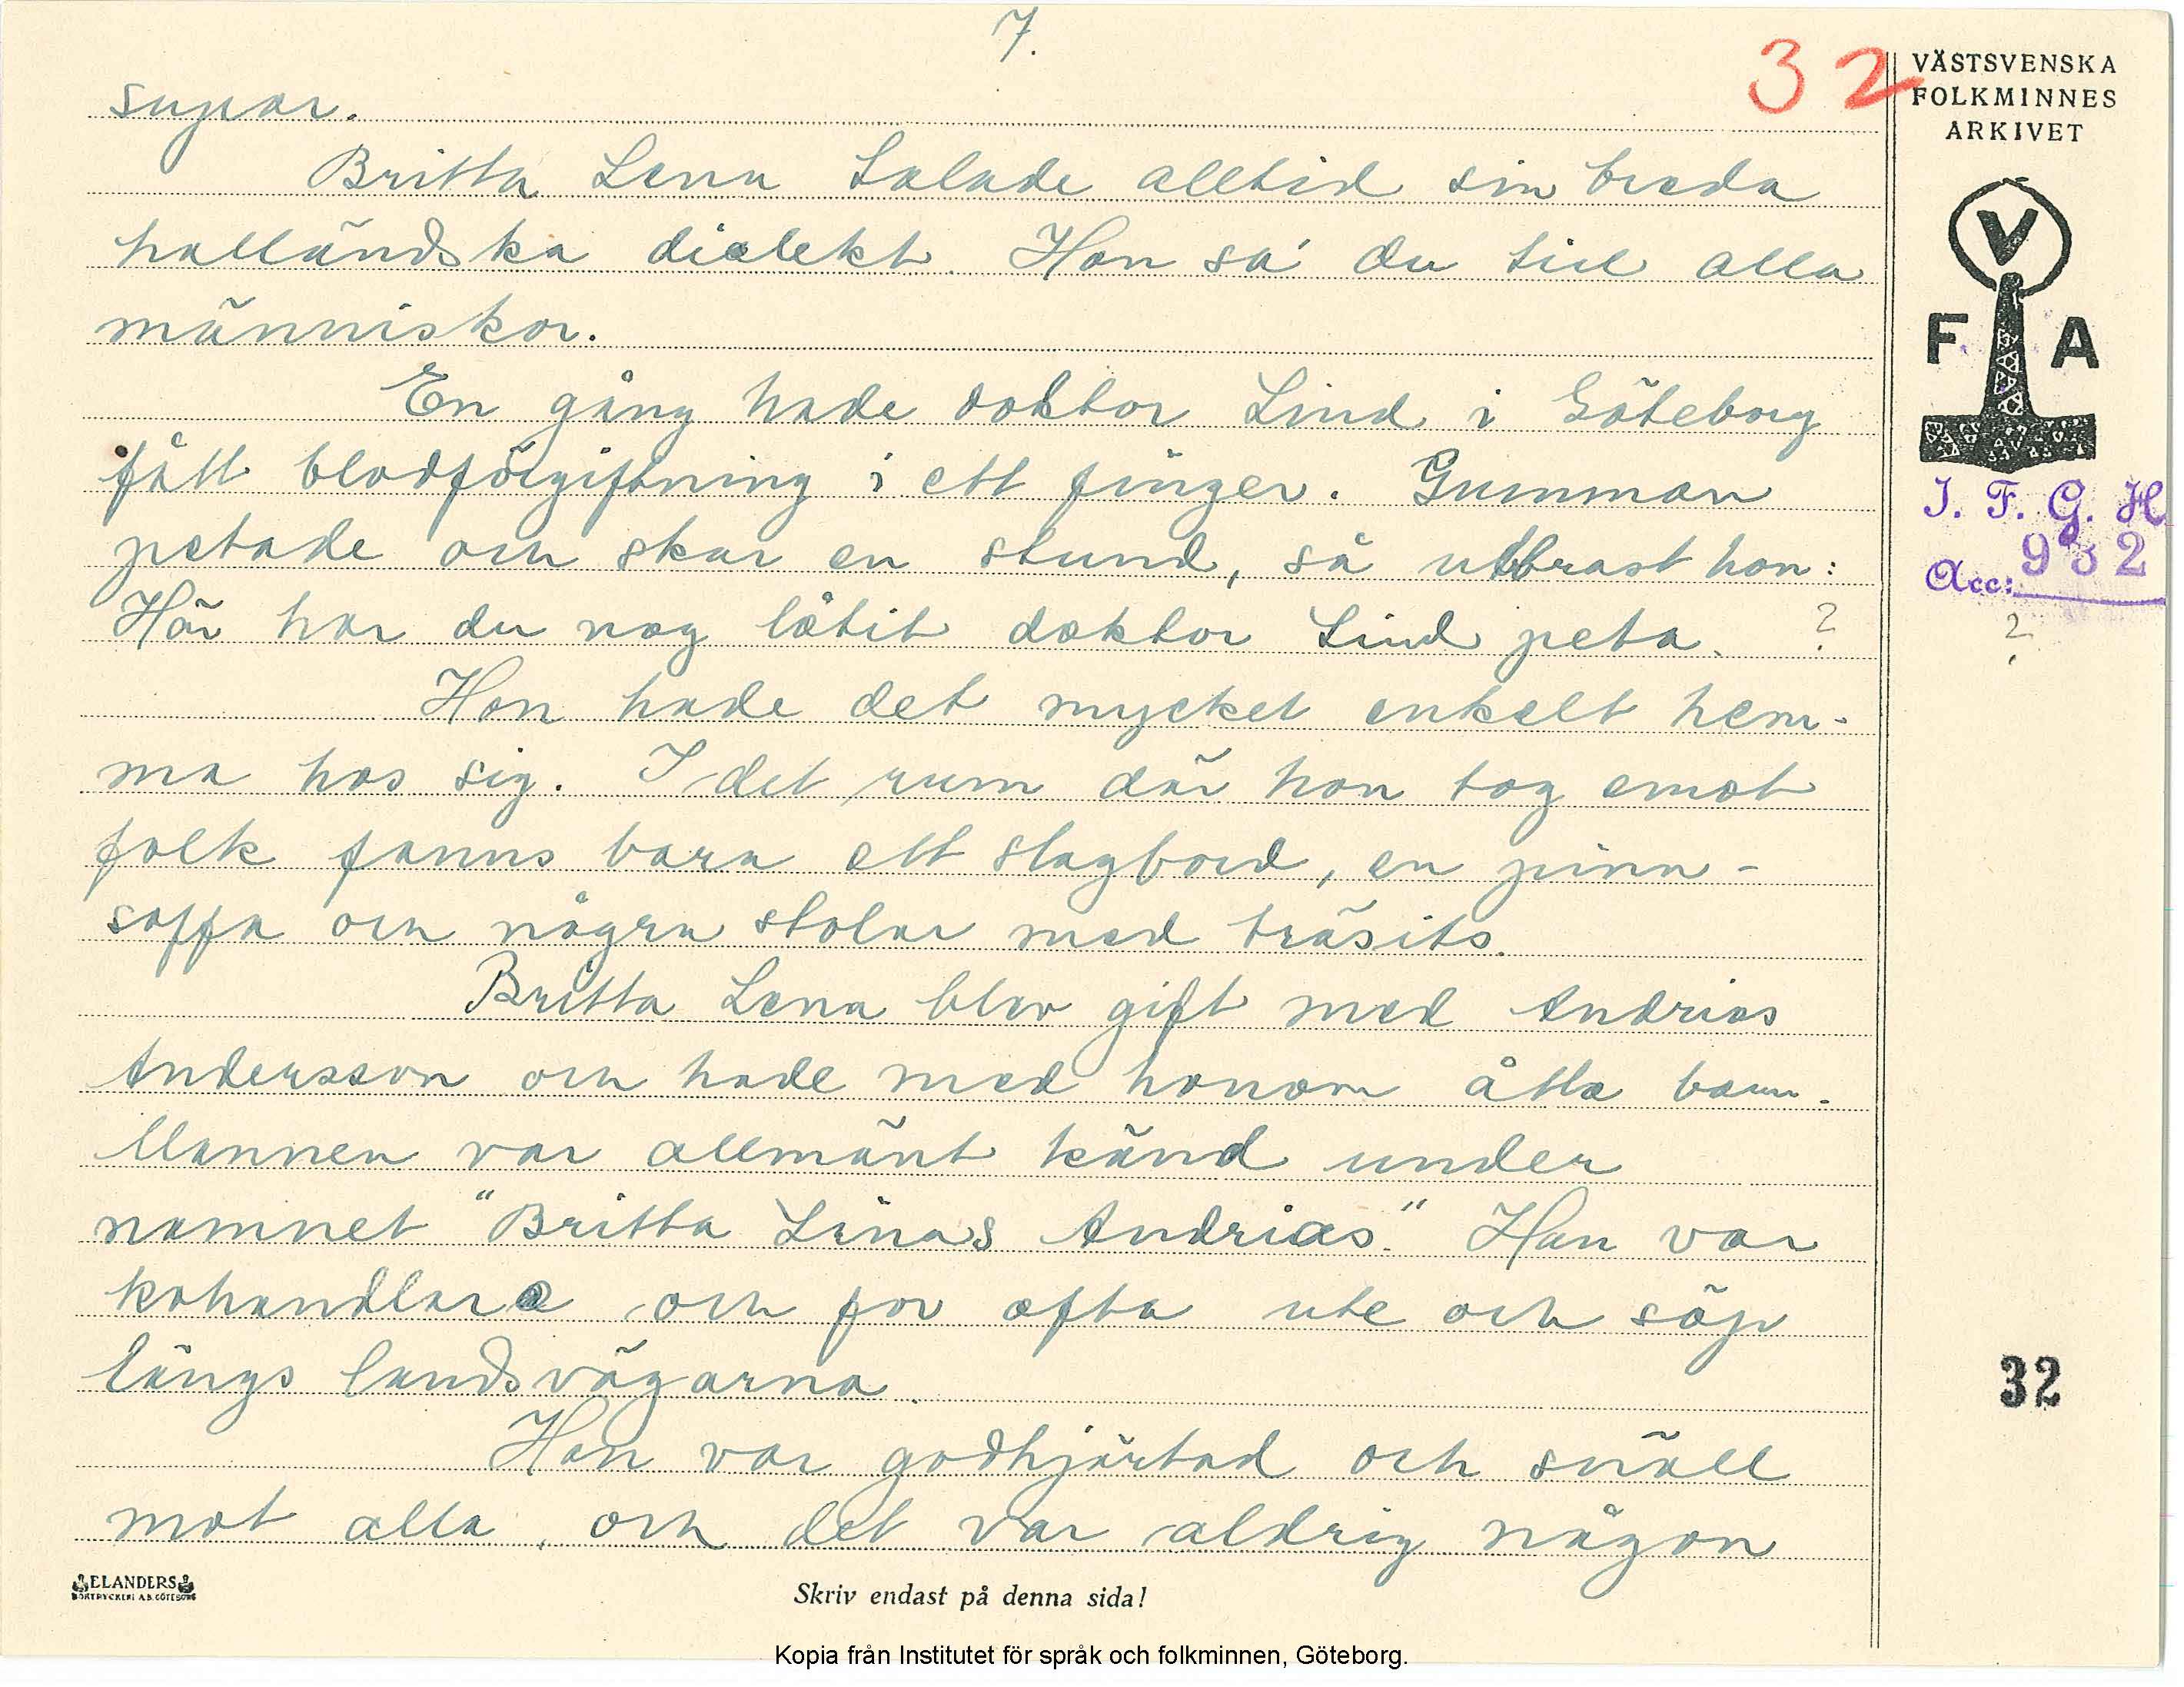 7.
32
supar.
Britta Lena talade alltid sin breda
halländska dialekt. Hon sa' du till alla
människor.
En gång hade doktor Lind i Göteborg
fått blodförgiftning i ett finger. Gumman
petade och skar en stund, så utbrast hon:
Här har du nog låtit doktor Lind peta. ?
Hon hade det mycket enkelt hem-
ma hos sig. I det rum där hon tog emot
folk fanns bara ett slagbord, en pinn-
soffa och några stolar med träsits.
Britta Lena blev gift med Andrias
Andersson och hade med honom åtta barn.
Mannen var allmänt känd under
namnet "Britta Lenas Andrias." Han var
kohandlare och for ofta ute och söp
längs landsvägarna.
Han var godhjärtad och snäll
mot alla, och det var aldrig någon
VÄSTSVENSKA
FOLKMINNES
ARKIVET
V
F A
I. F. G. H
Acc: 932
?
32
ELANDERS
BOKTRYCKERI A.B. GÖTEBORG
Skriv endast på denna sida!
Kopia från Institutet för språk och folkminnen, Göteborg.